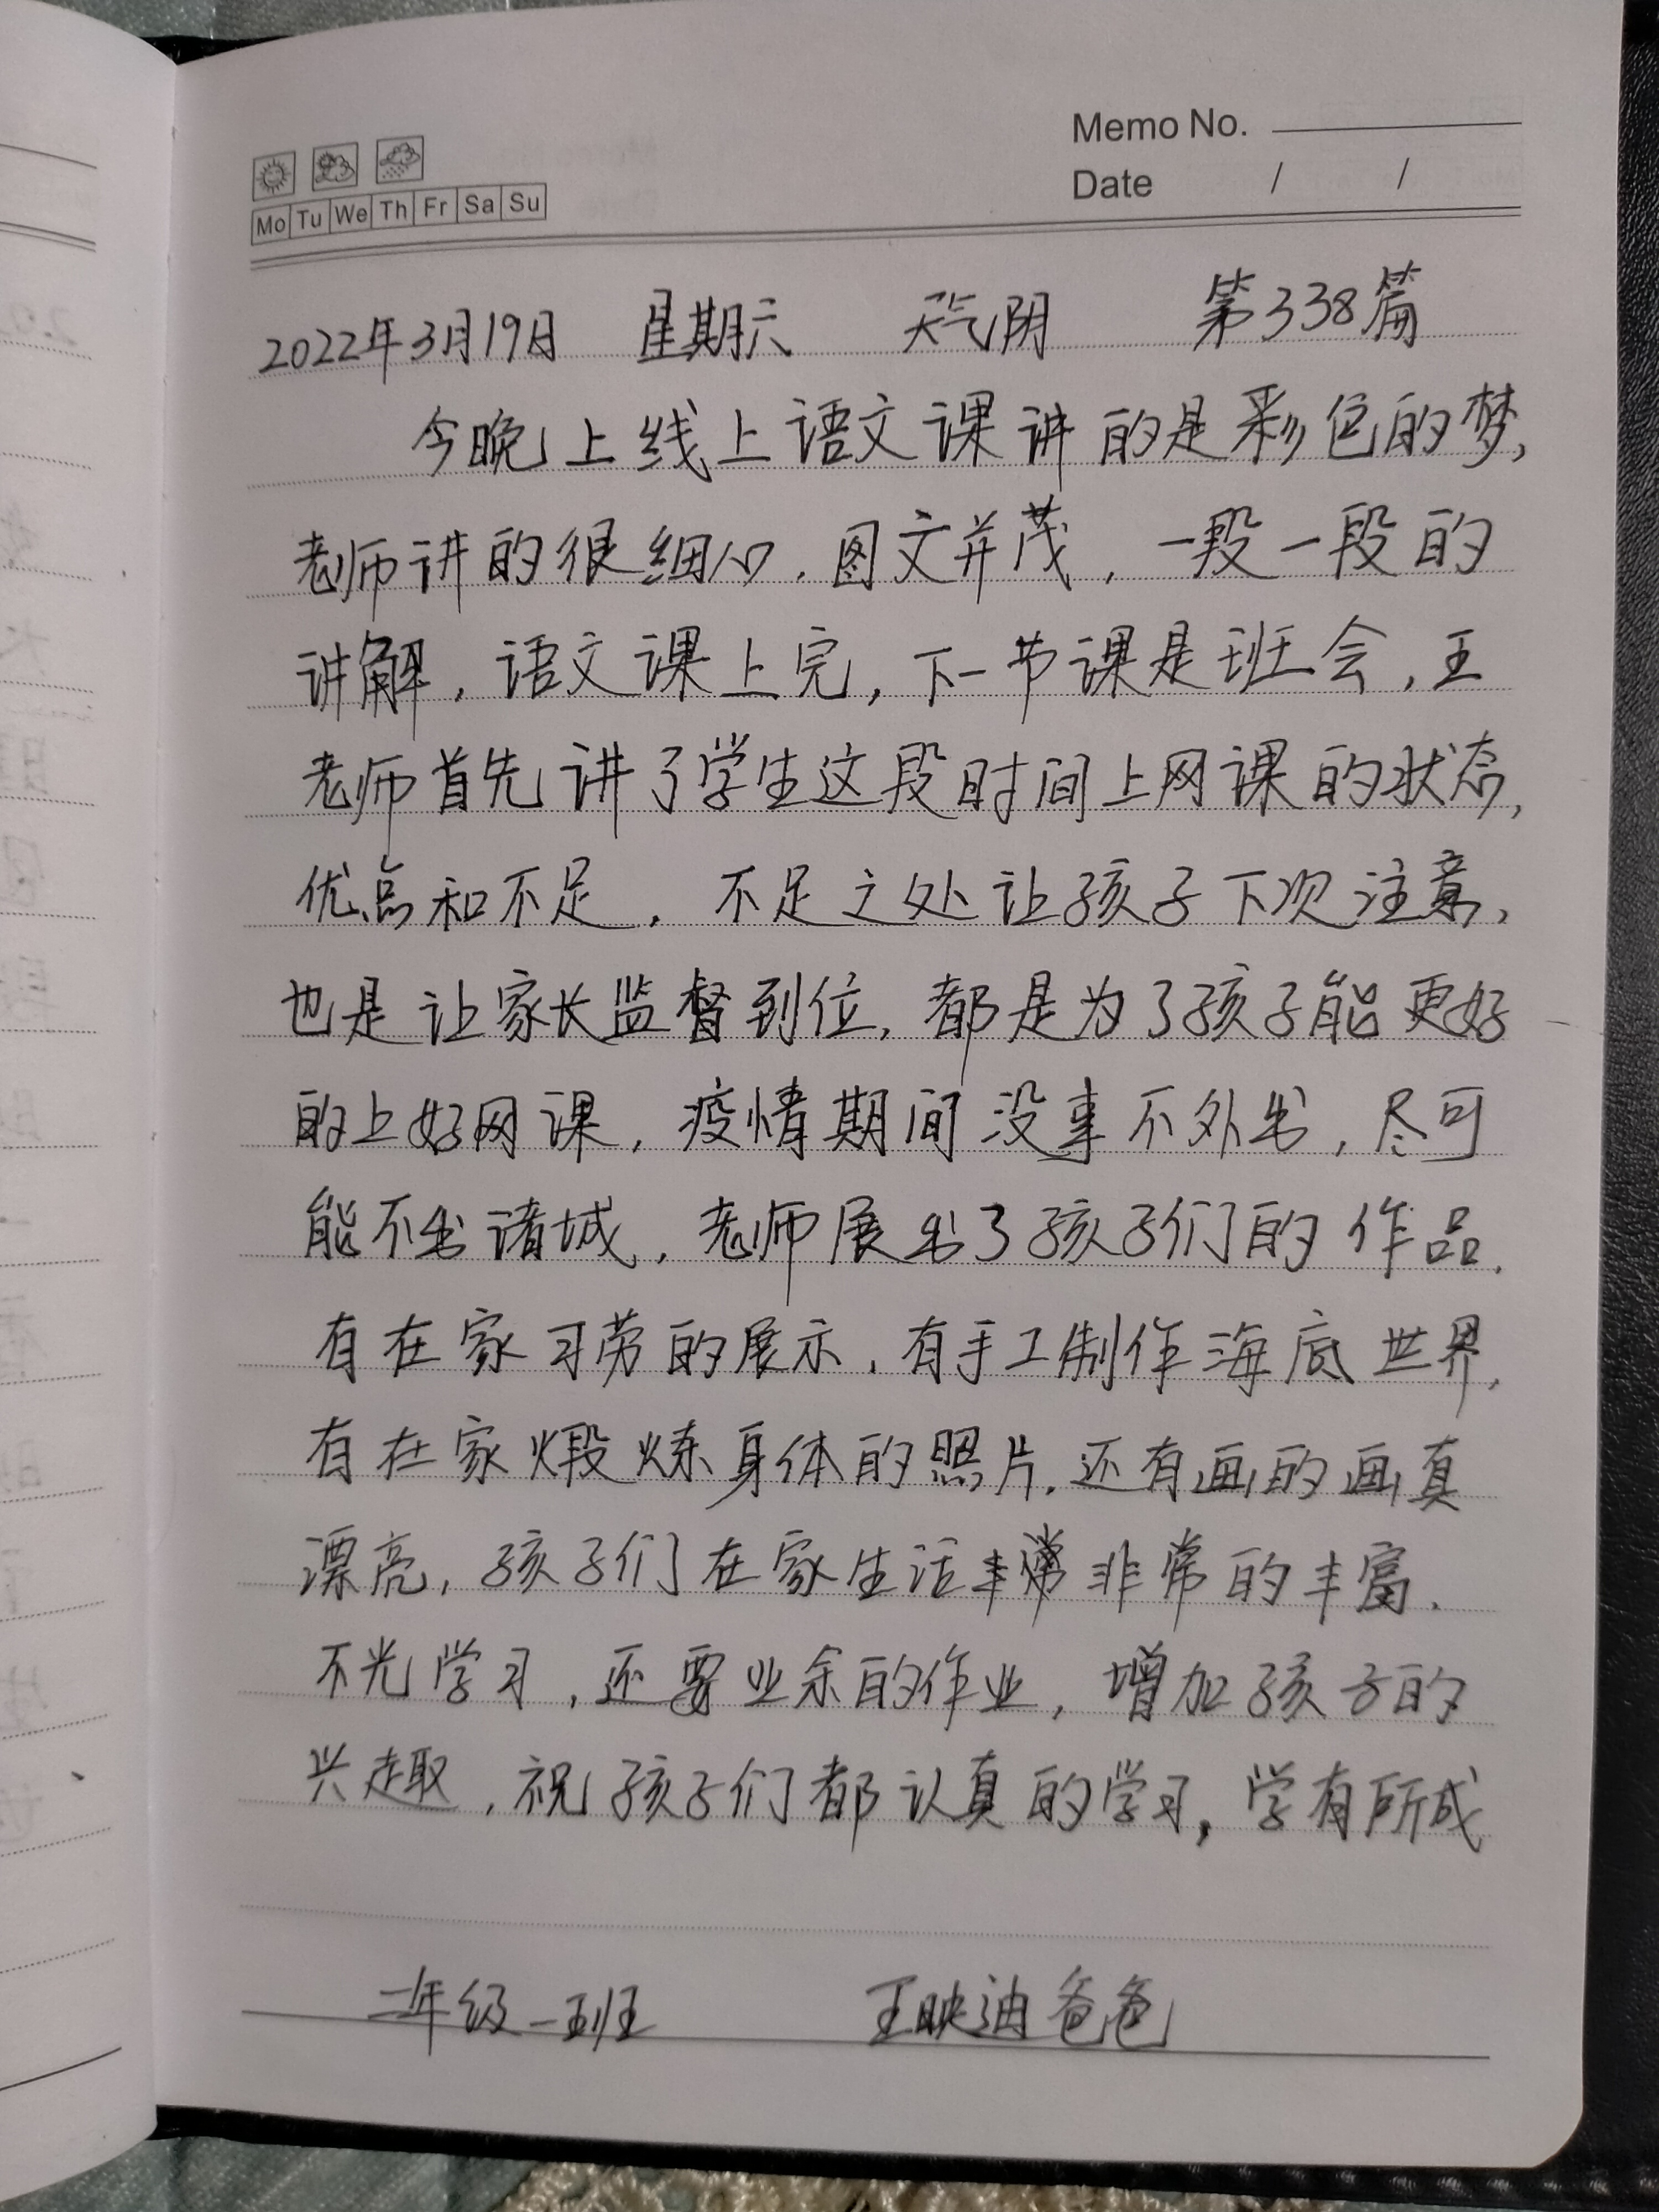 Memo No.
Mo Tu We Th Fr Sa Su
Date / /
2022年3月19日 星期六 天气阴 第338篇
今晚上线上语文课讲的是彩色的梦,
老师讲的很细心.图文并茂,一段一段的
讲解,语文课上完,下一节课是班会,王
老师首先讲了学生这段时间上网课的状态,
优点和不足.不足之处让孩子下次注意,
也是让家长监督到位,都是为了孩子能更好
的上好网课,疫情期间没事不外出,尽可
能不出诸城,老师展出了孩子们的作品.
有在家习劳的展示,有手工制作海底世界,
有在家煅炼身体的照片.还有画的画真
漂亮,孩子们在家生活非常的丰富.
不光学习,还要业余的作业,增加孩子的
兴趣,祝孩子们都认真的学习,学有所成
二年级一班 王映迪爸爸